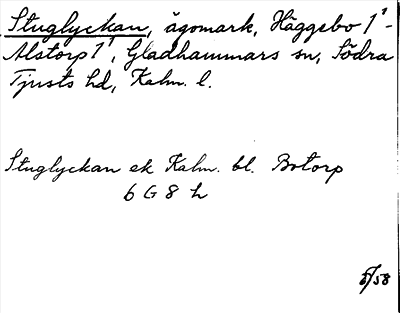 Stuglyckan, ägomark, Häggebo 1¹-
Alstorp 1¹, Gladhammars sn, Södra
Tjusts hd, Kalm. l.
Stuglyckan ek Kalm. bl. Botorp
6 G 8 h
5/58